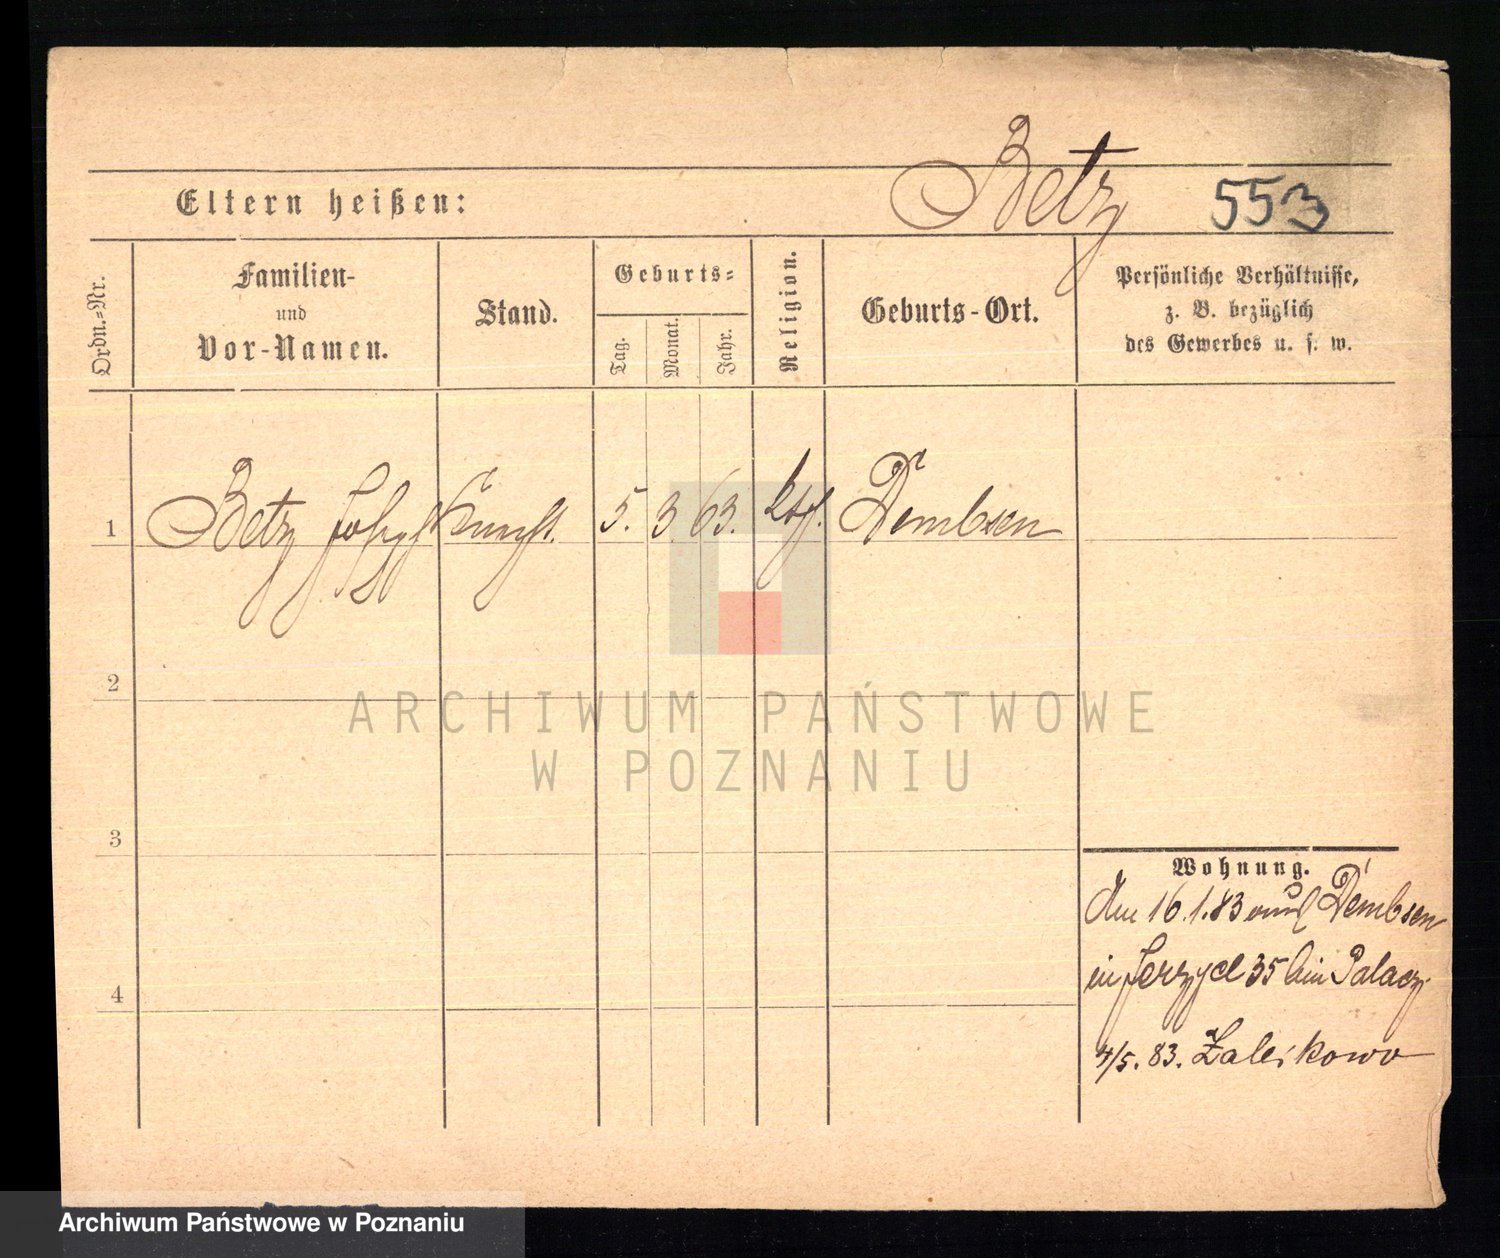 Betz 553
Eltern heißen:
Ordn.=Nr.
Familien-
und
Vor-Namen.
Stand.
Geburts=
Tag.
Monat.
Jahr.
Religion.
Geburts-Ort.
Persönliche Verhältnisse,
z. B. bezüglich
des Gewerbes u. s. w.
1 Betz Joseph 5. 3. 63. kth. Dembsen
2
ARCHIWUM PAŃSTWOWE
W POZNANIU
3
Wohnung.
16.1.83 Dembsen
4
in Jerzyce 35 bei Palacz
4/5.83. Żabikowo
Archiwum Państwowe w Poznaniu